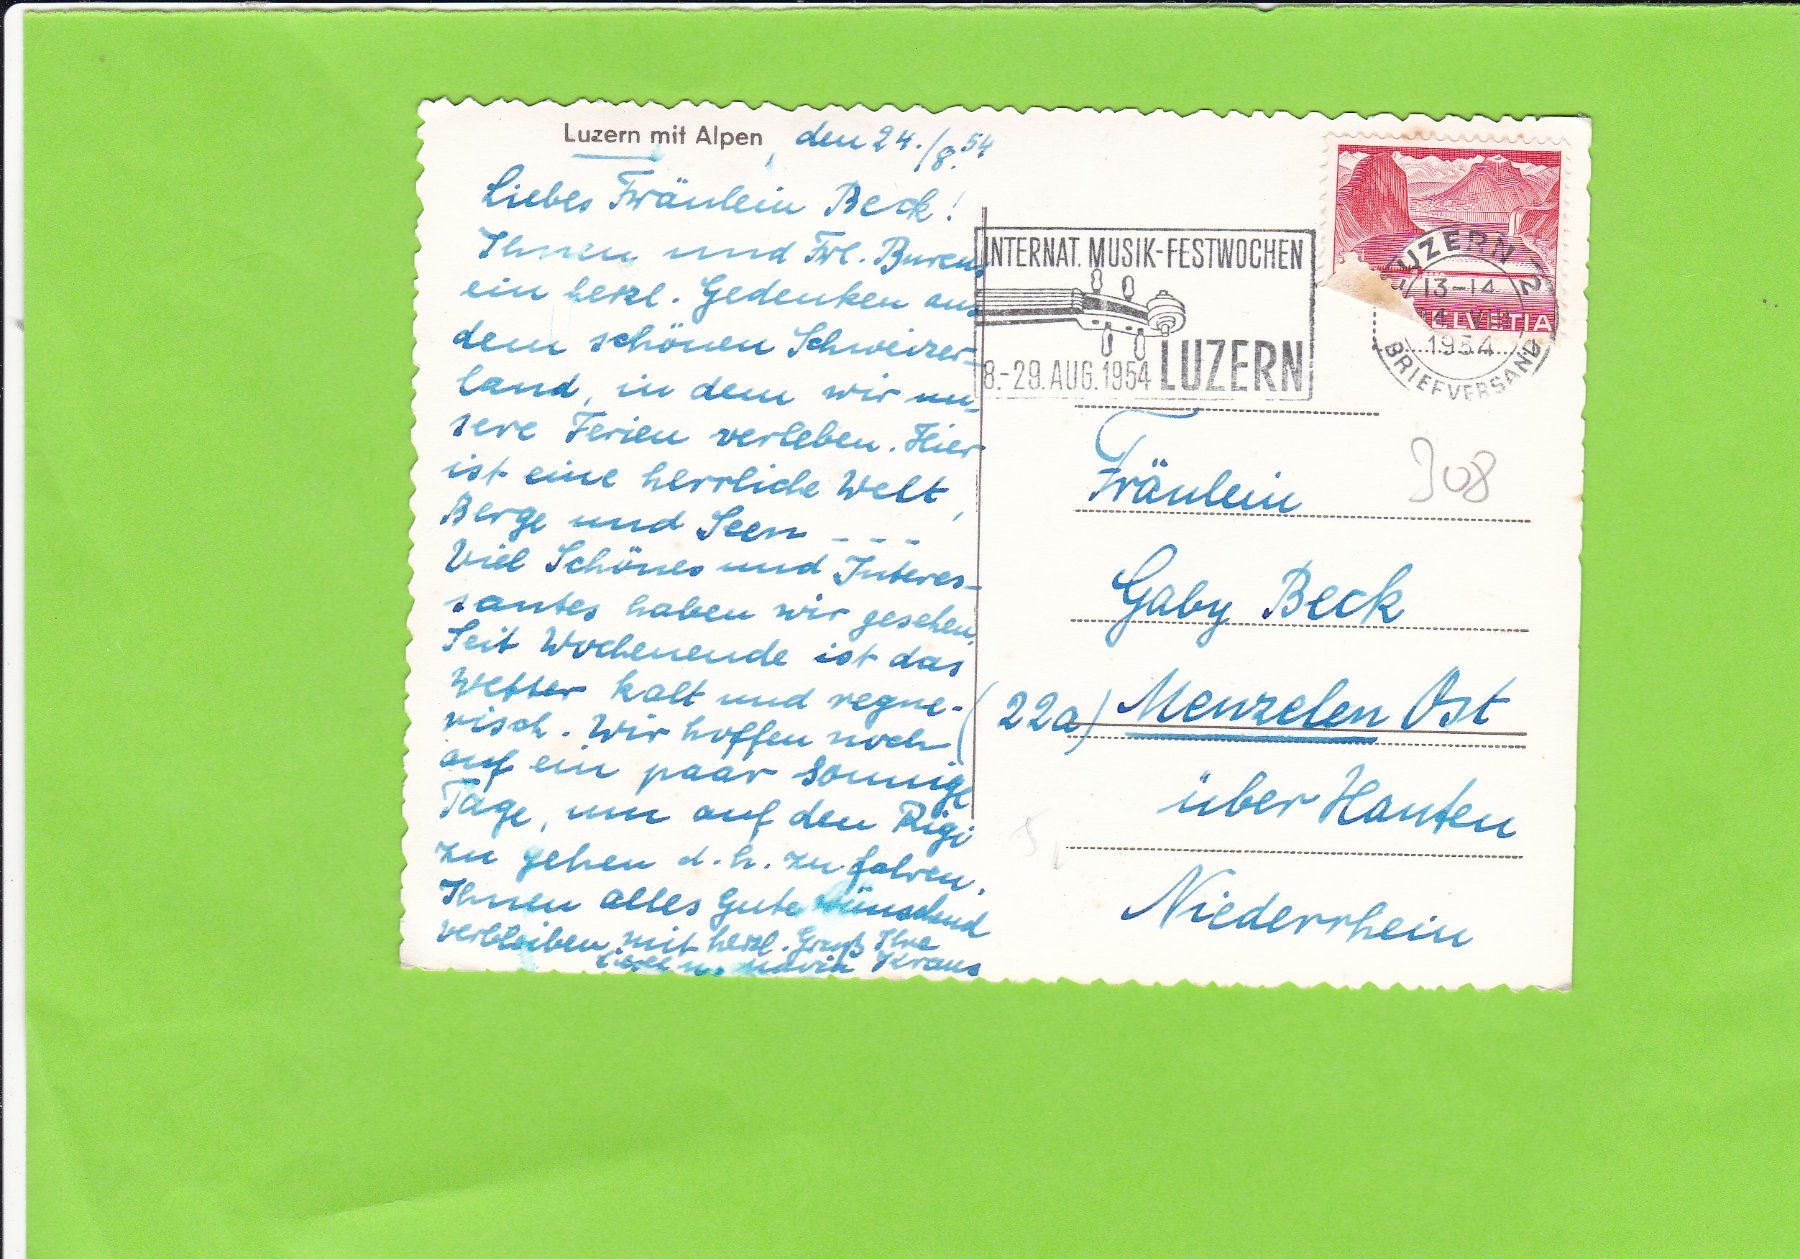 Luzern mit Alpen, den 24./8.54
Liebes Fräulein Beck!
Ihnen und Frl.
ein herzl. Gedenken aus
dem schönen Schweizer-
land, in dem wir un-
sere Ferien verleben. Hier
ist eine herrliche Welt,
Berge und Seen - - -
Viel Schönes und Interes-
santes haben wir gesehen.
Seit Wochenende ist das
Wetter kalt und regne-
risch. Wir hoffen noch
auf ein paar sonnige
Tage, um auf den Rigi
zu gehen d. h. zu fahren.
Ihnen alles Gute wünschend
verbleiben mit herzl. Gruß Ihre
Maria Kraus
INTERNAT. MUSIK-FESTWOCHEN
8.-29. AUG. 1954 LUZERN
HELVETIA
LUZERN 2
13-14
1954
BRIEFVERSAND
308
Fräulein
Gaby Beck
(22a) Menzelen Ost
über Xanten
Niederrhein